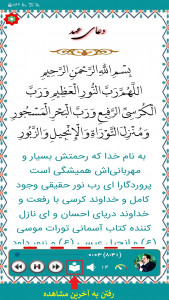 دعای عهد
بِسْمِ اللَّهِ الرَّحْمَنِ الرَّحِيمِ
اللَّهُمَّ رَبَّ النُّورِ الْعَظِيمِ وَرَبَّ
الْكُرْسِيِّ الرَّفِيعِ وَرَبَّ الْبَحْرِ الْمَسْجُورِ
وَمُنْزِلَ التَّوْرَاةِ وَالْإِنْجِيلِ وَالزَّبُورِ
به نام خدا که رحمتش بسیار و
مهربانی‌اش همیشگی است
پروردگارا ای رب نور حقیقی وجود
کامل و خداوند کرسی با رفعت و
خداوند دریای احسان و ای نازل
کننده کتاب آسمانی تورات موسی
(ع) و انجیل عیسی (ع) و زبور داود
۰:۰۳ (۸:۳۱)
۱۴
رفتن به آخرین مشاهده